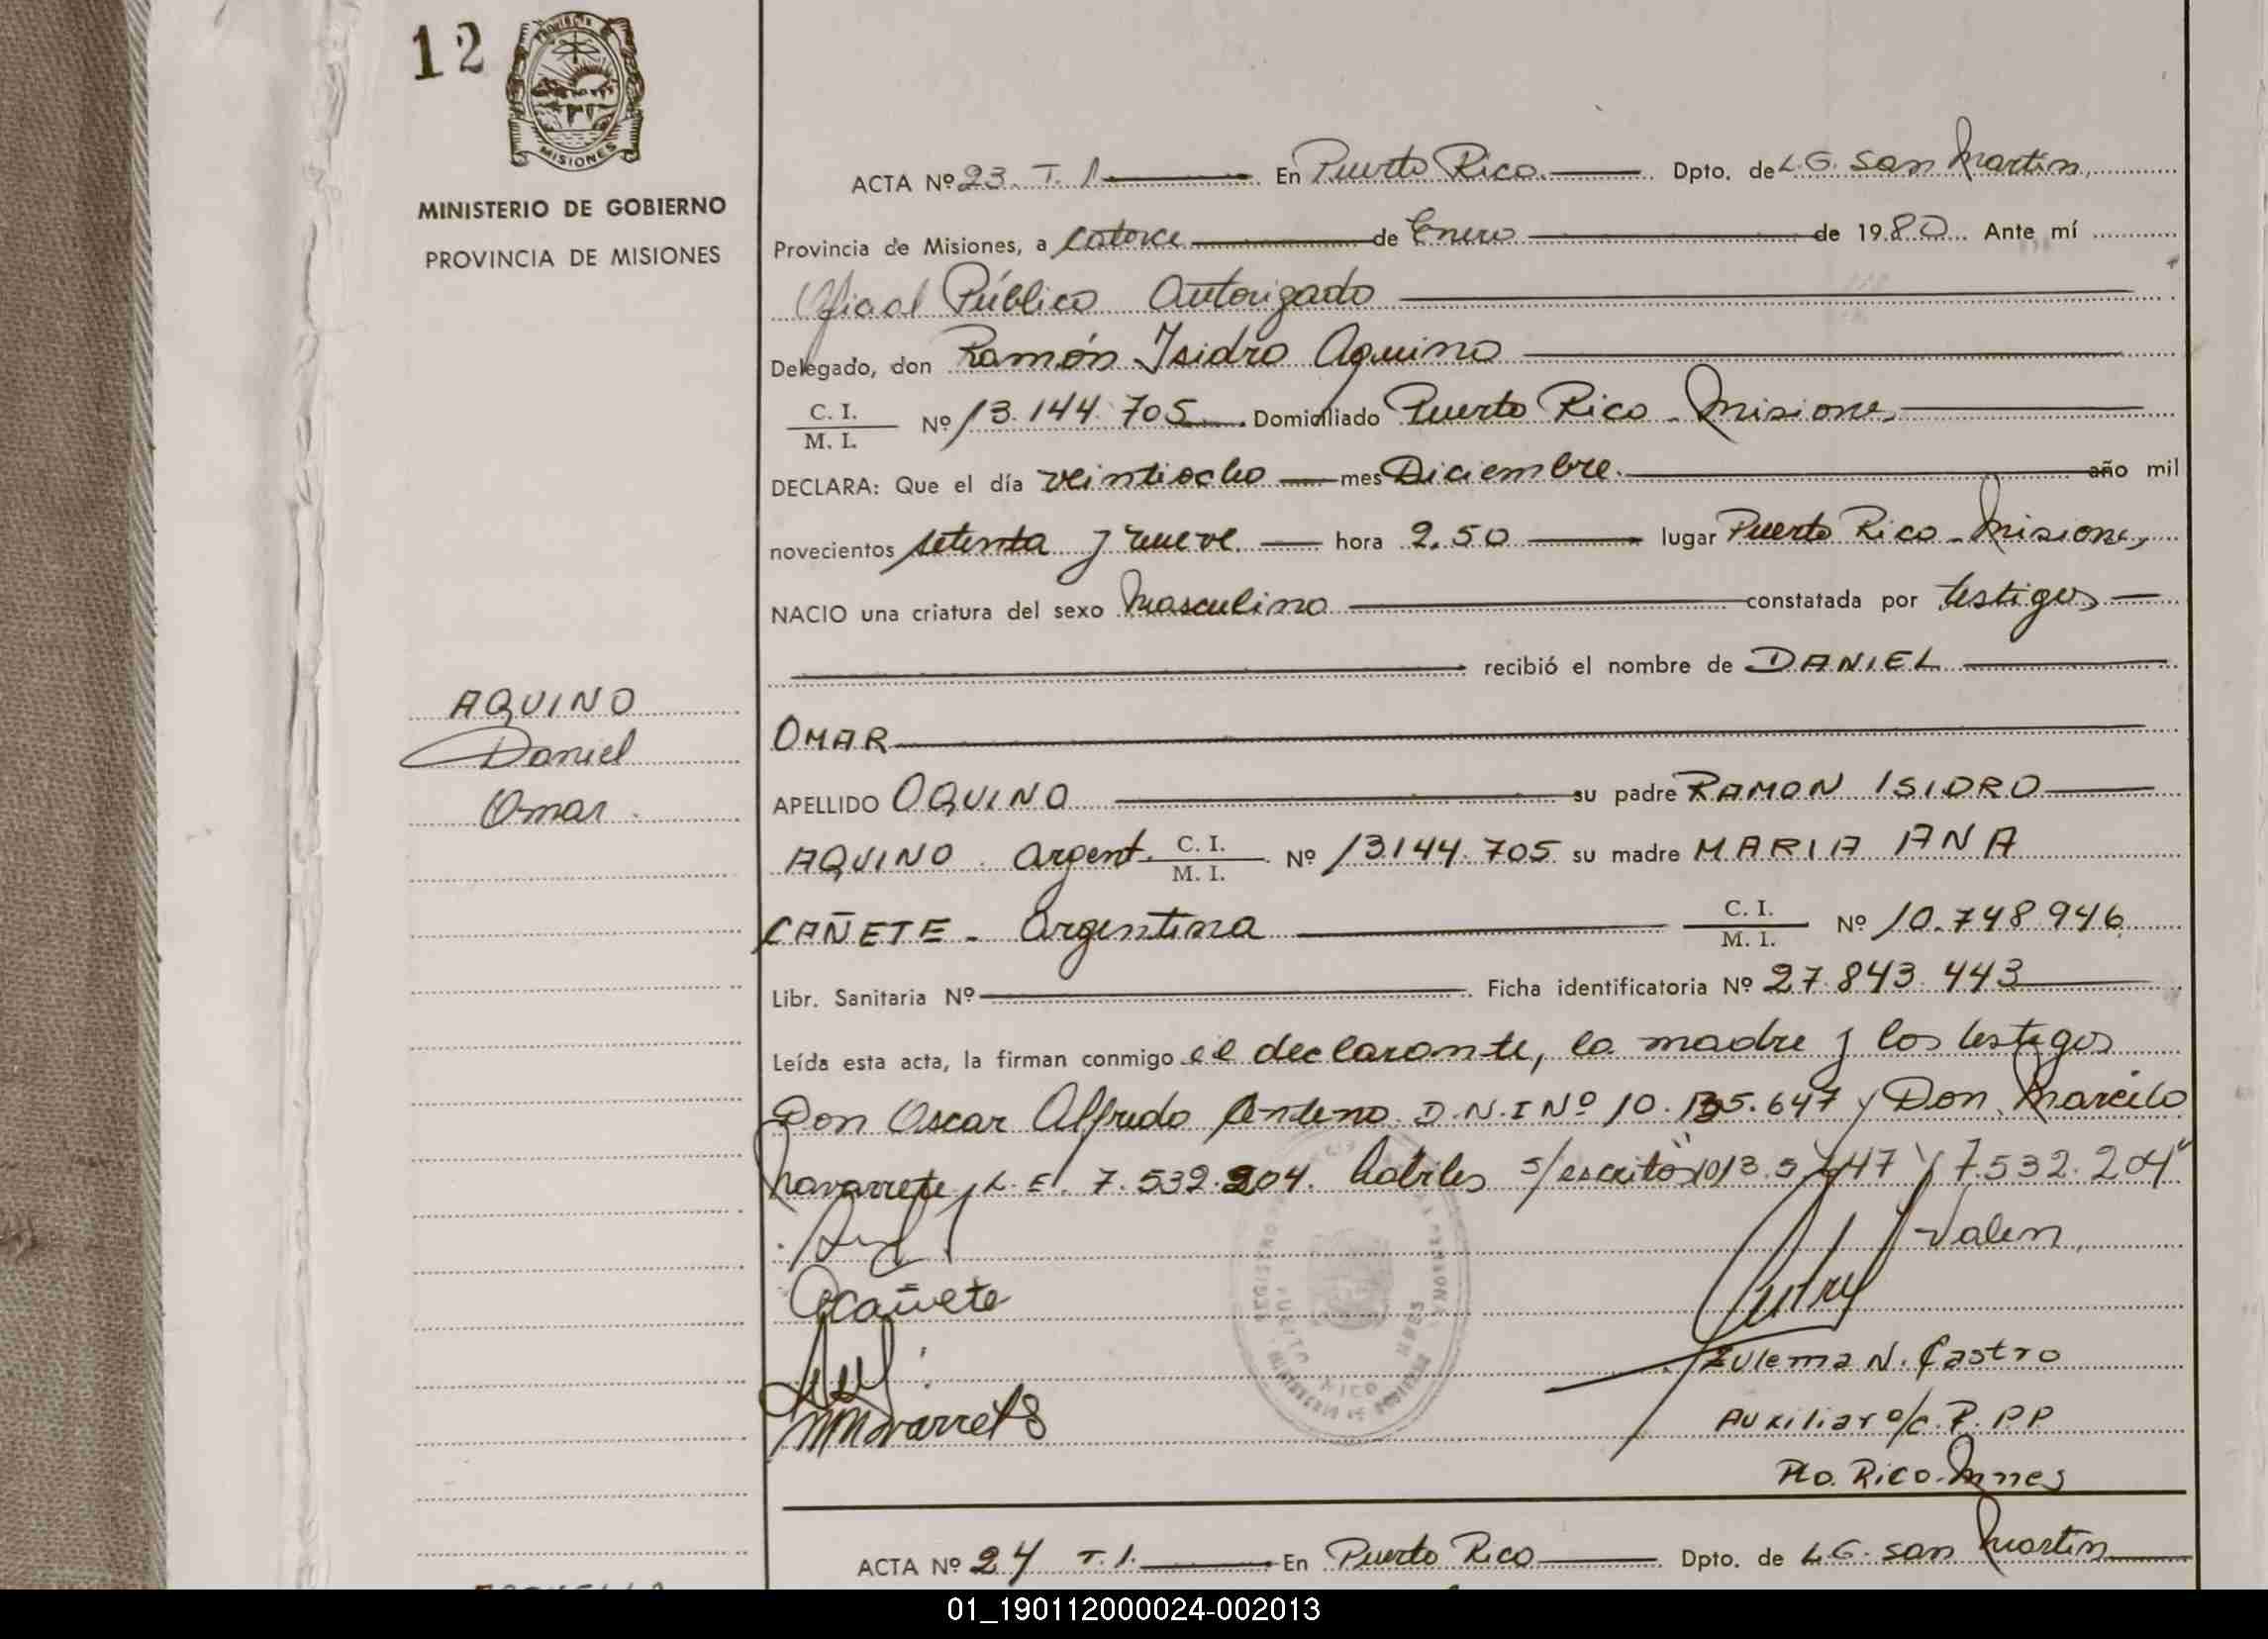 12
PROVINCIA
MISIONES
MINISTERIO DE GOBIERNO
PROVINCIA DE MISIONES
ACTA Nº 23. T. 1 En Puerto Rico. Dpto. de L.G. San Martín,
Provincia de Misiones, a Catorce de Enero de 1980 Ante mí
Oficial Público Autorizado
Delegado, don Ramón Isidro Aquino
C. I.
M. I. Nº 13.144.705 Domiciliado Puerto Rico - Misiones
DECLARA: Que el día veintiocho mes Diciembre. año mil
novecientos setenta y nueve hora 2.50 lugar Puerto Rico - Misiones
NACIO una criatura del sexo Masculino constatada por testigos
recibió el nombre de DANIEL
OMAR
AQUINO
Daniel
Omar.
APELLIDO OQUINO su padre RAMON ISIDRO
AQUINO. Argent. C. I.
M. I. Nº 13.144.705 su madre MARIA ANA
CAÑETE - Argentina C. I.
M. I. Nº 10.748.946
Libr. Sanitaria Nº Ficha identificatoria Nº 27.843.443
Leída esta acta, la firman conmigo el declarante, la madre y los testigos
Don Oscar Alfredo D.N.I Nº 10.135.647 y Don Marcelo
Navarrete, L.E. 7.532.204. habiles s/escrito y 7.532.204"
Valen
Cañete
Navarrete
Zulema N. Castro
Auxiliar a/c. R. PP
Pto. Rico. Mnes
ACTA Nº 24 T. 1. En Puerto Rico Dpto. de L.G. San Martín
01_190112000024-002013